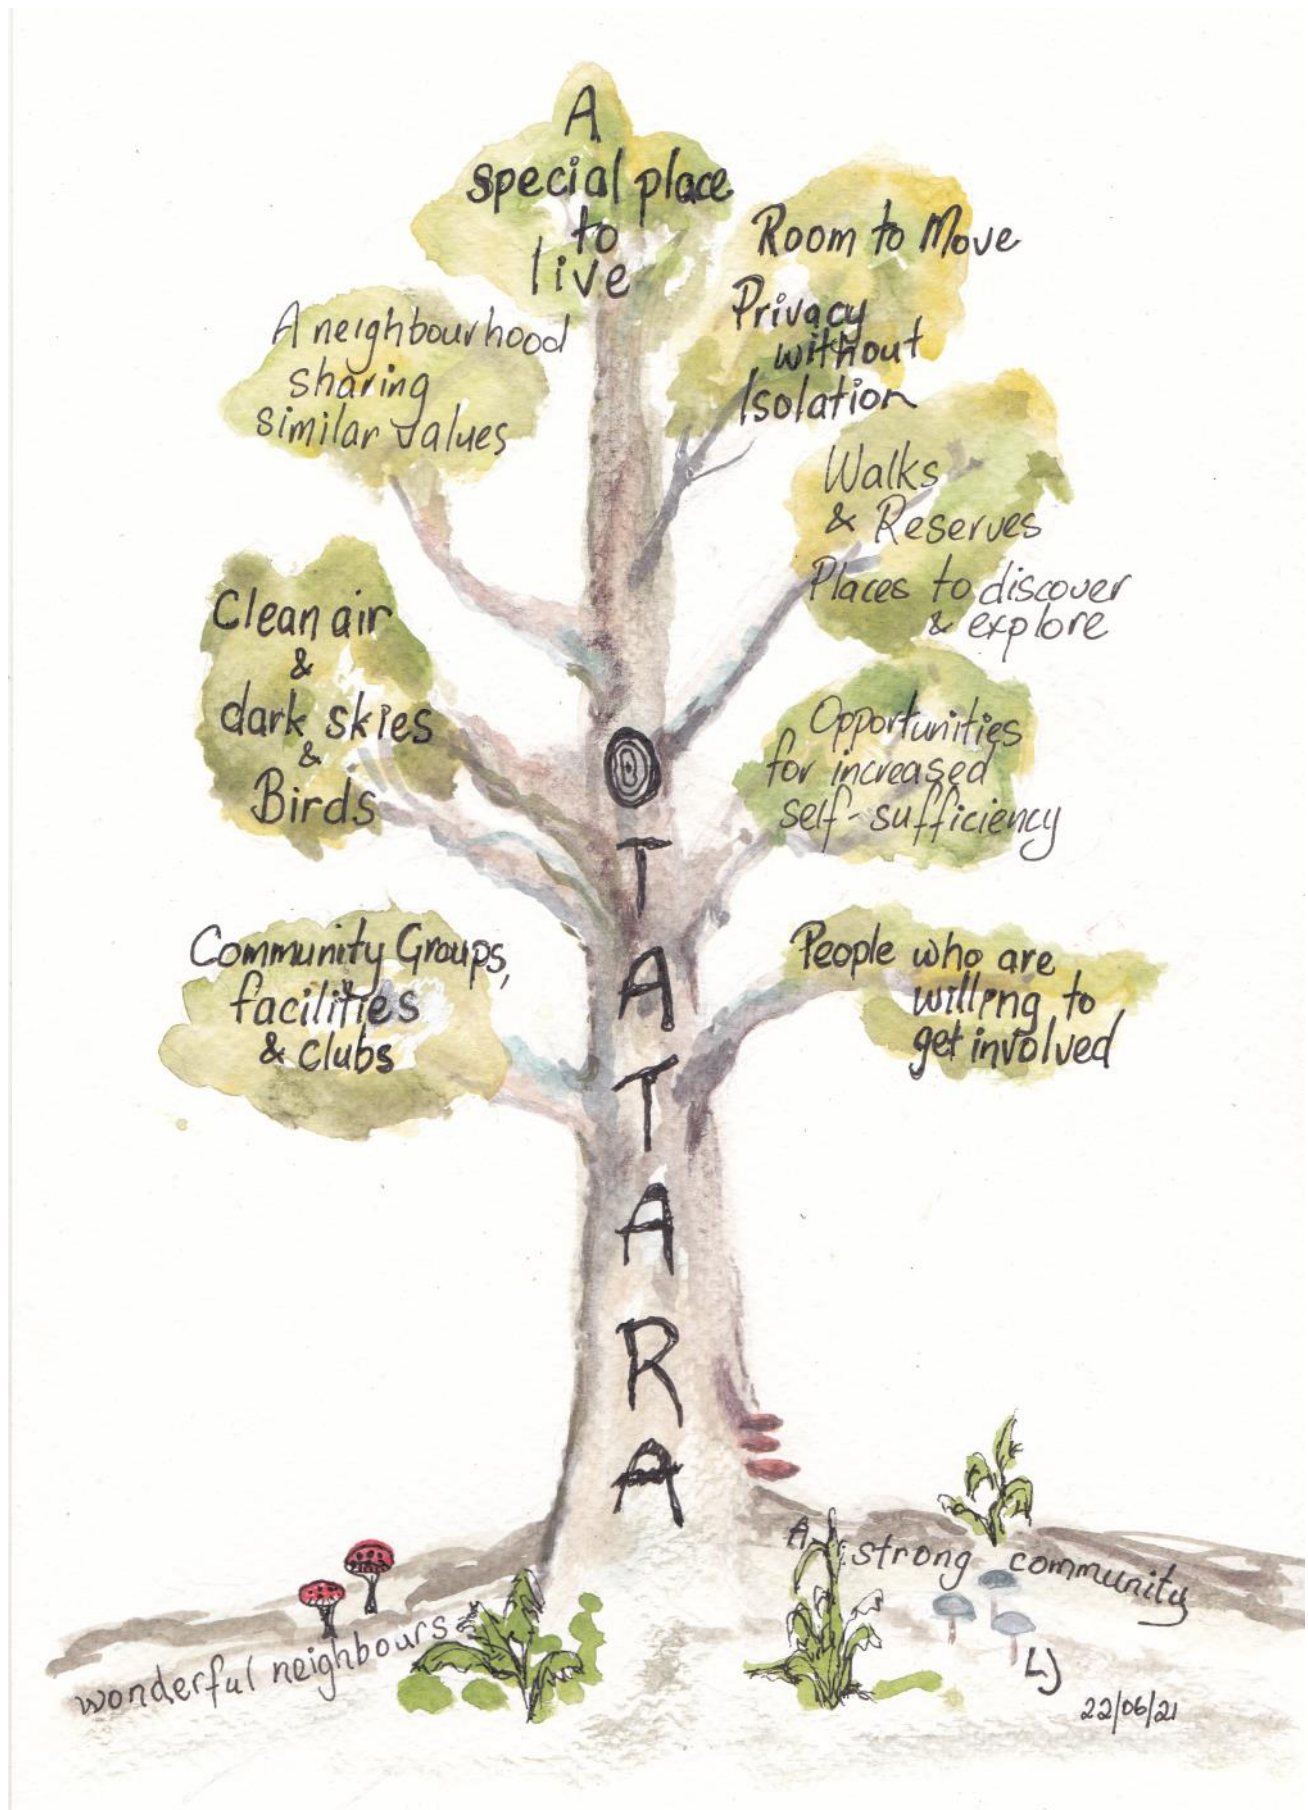 A
special place
to
live
Room to Move
Privacy
without
Isolation
A neighbourhood
sharing
similar values
Walks
& Reserves
Places to discover
& explore
Clean air
&
dark skies
&
Birds
Opportunities
for increased
self-sufficiency
Community Groups,
facilities
& clubs
People who are
willing to
get involved
OTATARA
wonderful neighbours
A strong community
LJ
22/06/21